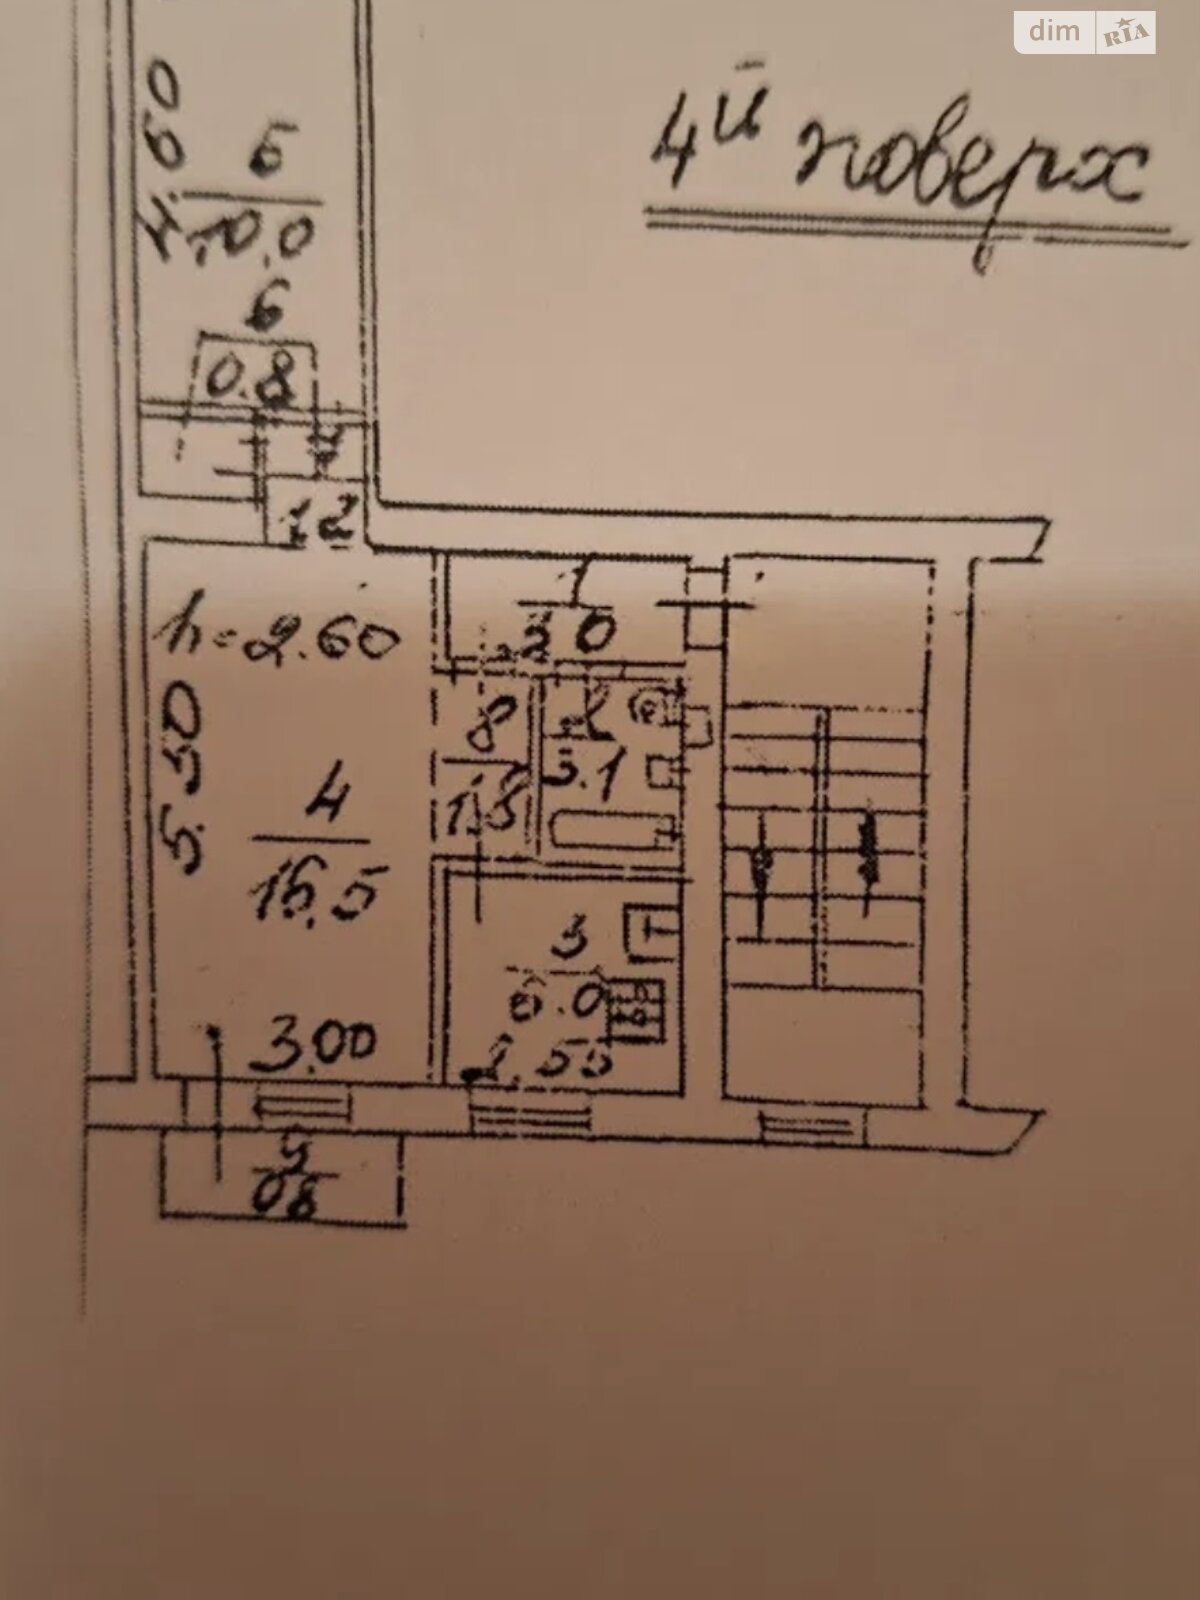 dim RIA
4й поверх
4.50
5
10.0
6
0.8
7
1.2
h=2.60
1
3.0
8
1.5
2
3.1
5.50
4
16.5
3
6.0
3.00
2.55
9
0.8